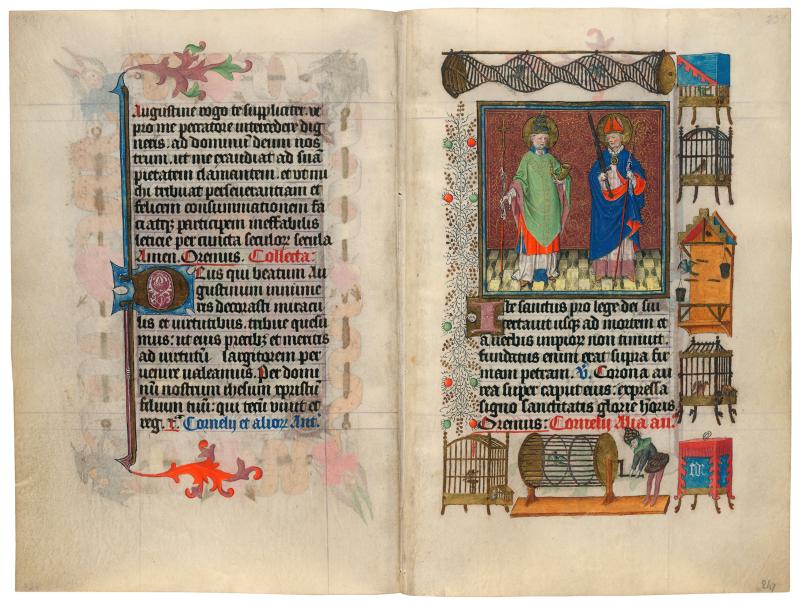 Augustine rogo te suppliciter. ut
pro me peccatore intercedere dig
neris. ad dominum deum nos
trum. ut me exaudiat ad suam
pietatem clamantem. et ut mi
chi tribuat perseverantiam et
felicem consummationem fa
ciatque participem ineffabilis
leticie per cuncta seculorum secula
Amen. Oremus. Collecta:
Deus qui beatum Au
gustinum innume
res decorasti miracu
lis et virtutibus. tribue quesu
mus: ut eius precibus et meritis
ad virtutum largitorem per
venire valeamus. Per domi
num nostrum ihesum xpristum
filium tuum: qui tecum vivit et
reg. Cornelij et alior Ant.
Iste sanctus pro lege dei sui
certavit usque ad mortem et
a verbis impiorum non timuit.
fundatus enim erat supra fir
mam petram. V. Corona au
rea super caput eius: expressa
signo sanctitatis glorie honoris
Oremus: Cornelij Alia an.
247